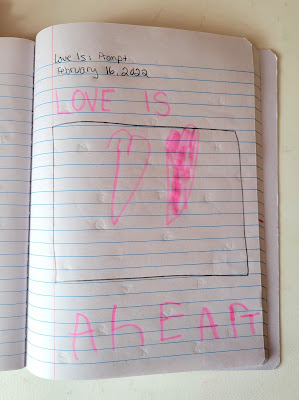 Love Is: Prompt.
February 16, 2022
LOVE IS
A hEART